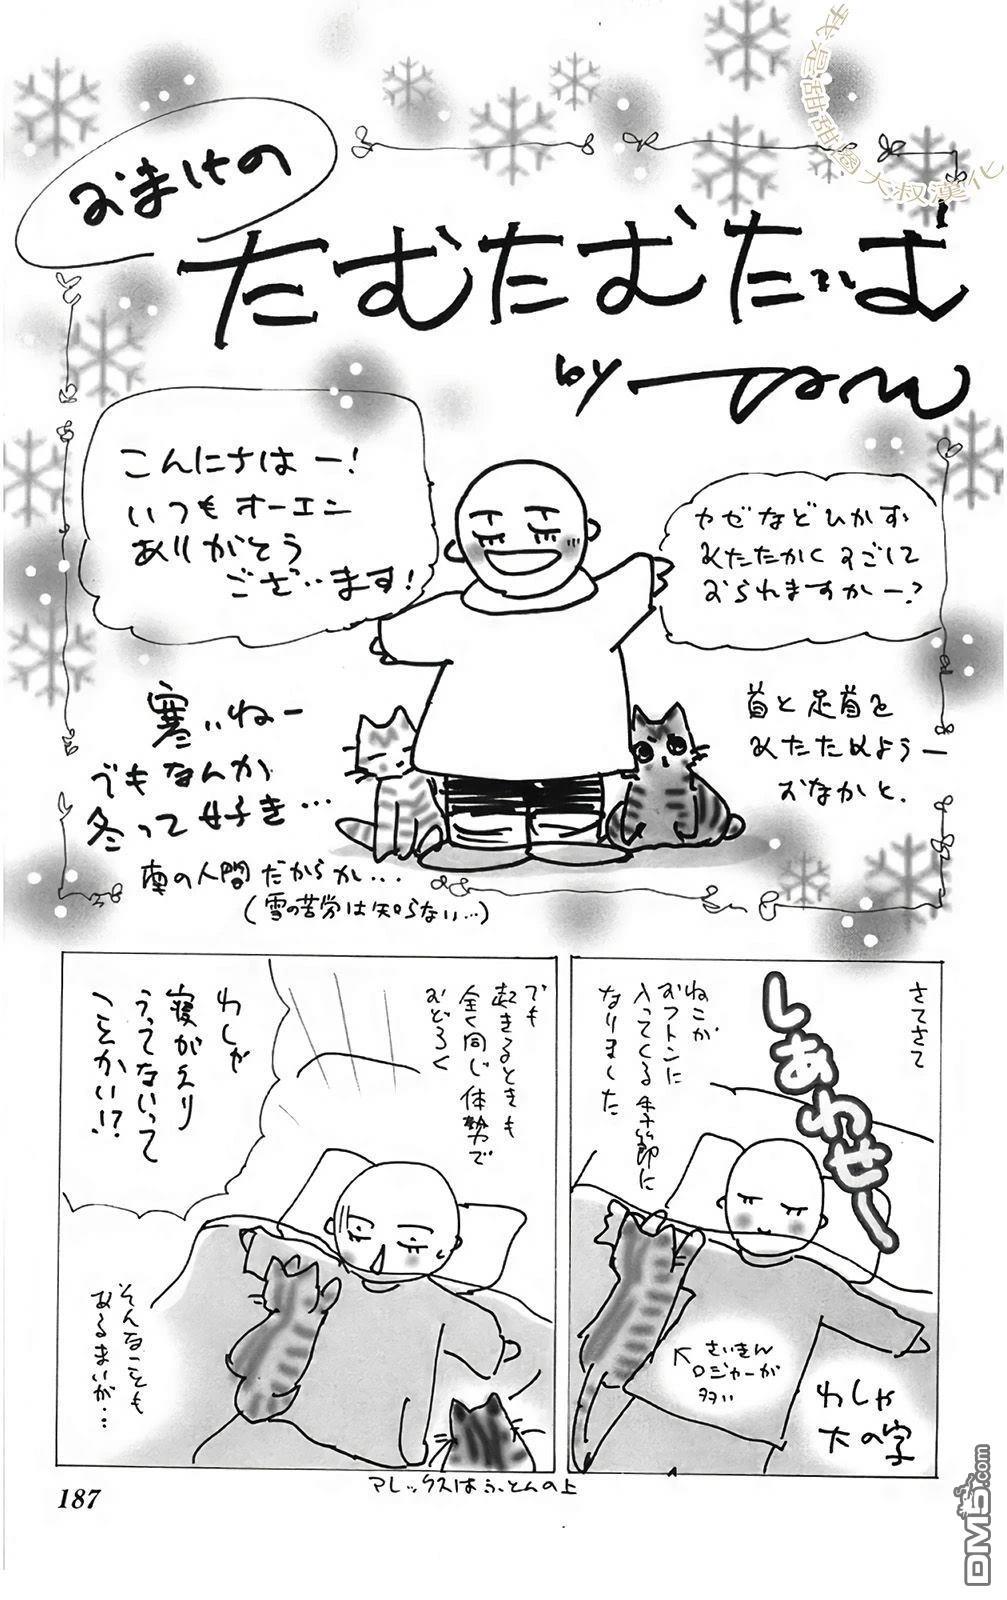 我是甜甜圈大叔漢化
おまけの
たむたむたいむ
by
こんにちはー!
いつもオーエン
ありがとう
ございます!
カゼなどひかず
あたたかくすごして
おられますかー?
寒いねー
でもなんか
冬って好き…
南の人間だからか…
(雪の苦労は知らない…)
首と足首を
あたためようー
おなかと.
さてさて
ねこが
おフトンに
入ってくる季節に
なりました
しあわせー
さいきん
ロジャーが
多い
わしゃ
大の字
でも
起きるときも
全く同じ体勢で
おどろく
わしゃ
寝がえり
うってないって
ことかい!?
そんなことも
あるまいが…
アレックスはふとんの上
187
DM5.com